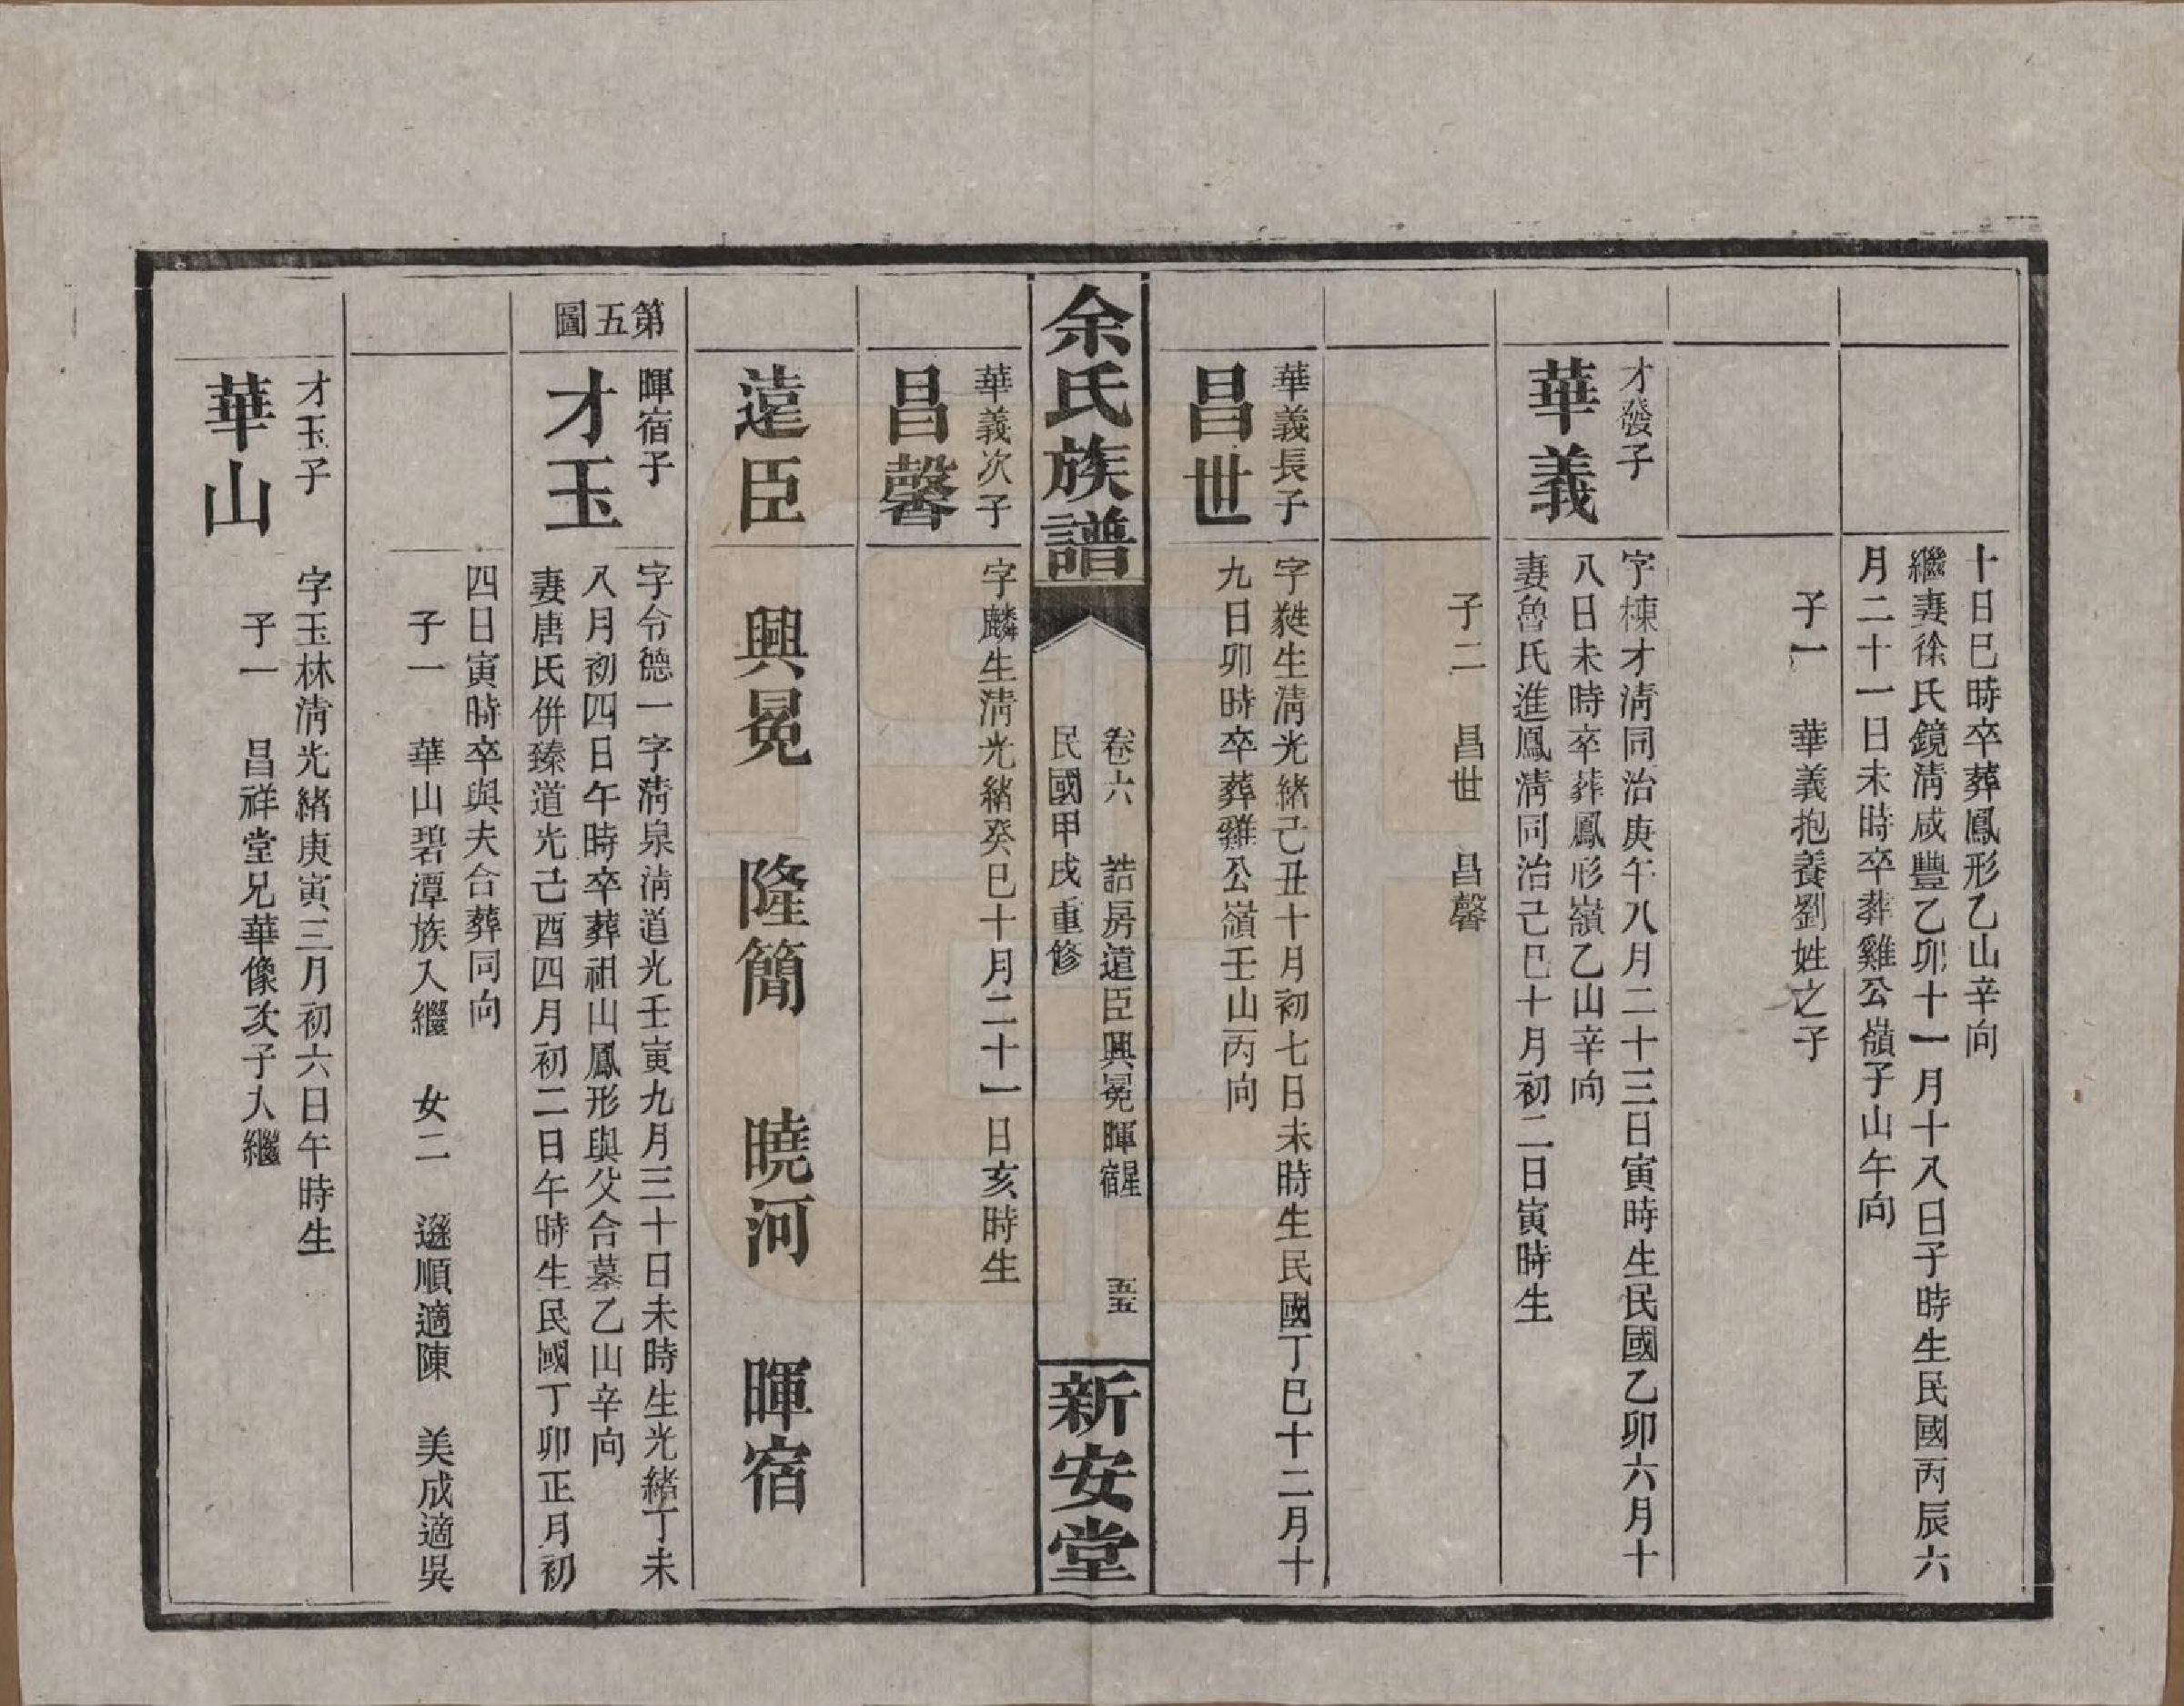 十日巳時卒葬鳳形乙山辛向
繼妻徐氏鏡清咸豐乙卯十一月十八日子時生民國丙辰六
月二十一日未時卒葬雞公嶺子山午向
子一　華義抱養劉姓之子
才發子
華義
字棟才清同治庚午八月二十三日寅時生民國乙卯六月十
八日未時卒葬鳳形嶺乙山辛向
妻魯氏進鳳清同治己巳十月初二日寅時生
子二　昌世　昌馨
華義長子
昌世
字甡生清光緒己丑十月初七日未時生民國丁巳十二月十
九日卯時卒葬雞公嶺壬山丙向
余氏族譜
卷六　誥房遠臣興冕暉宿星　五五
民國甲戌重修
新安堂
華義次子
昌馨
字麟生清光緒癸巳十月二十一日亥時生
遠臣　興冕　隆簡　曉河　暉宿
第五圖
暉宿子
才玉
字令德一字清泉清道光壬寅九月三十日未時生光緒丁未
八月初四日午時卒葬祖山鳳形與父合墓乙山辛向
妻唐氏併臻道光己酉四月初二日午時生民國丁卯正月初
四日寅時卒與夫合葬同向
子一　華山碧潭族入繼　女二　遜順適陳　美成適吳
才玉子
華山
字玉林清光緒庚寅三月初六日午時生
子一　昌祥堂兄華像次子入繼